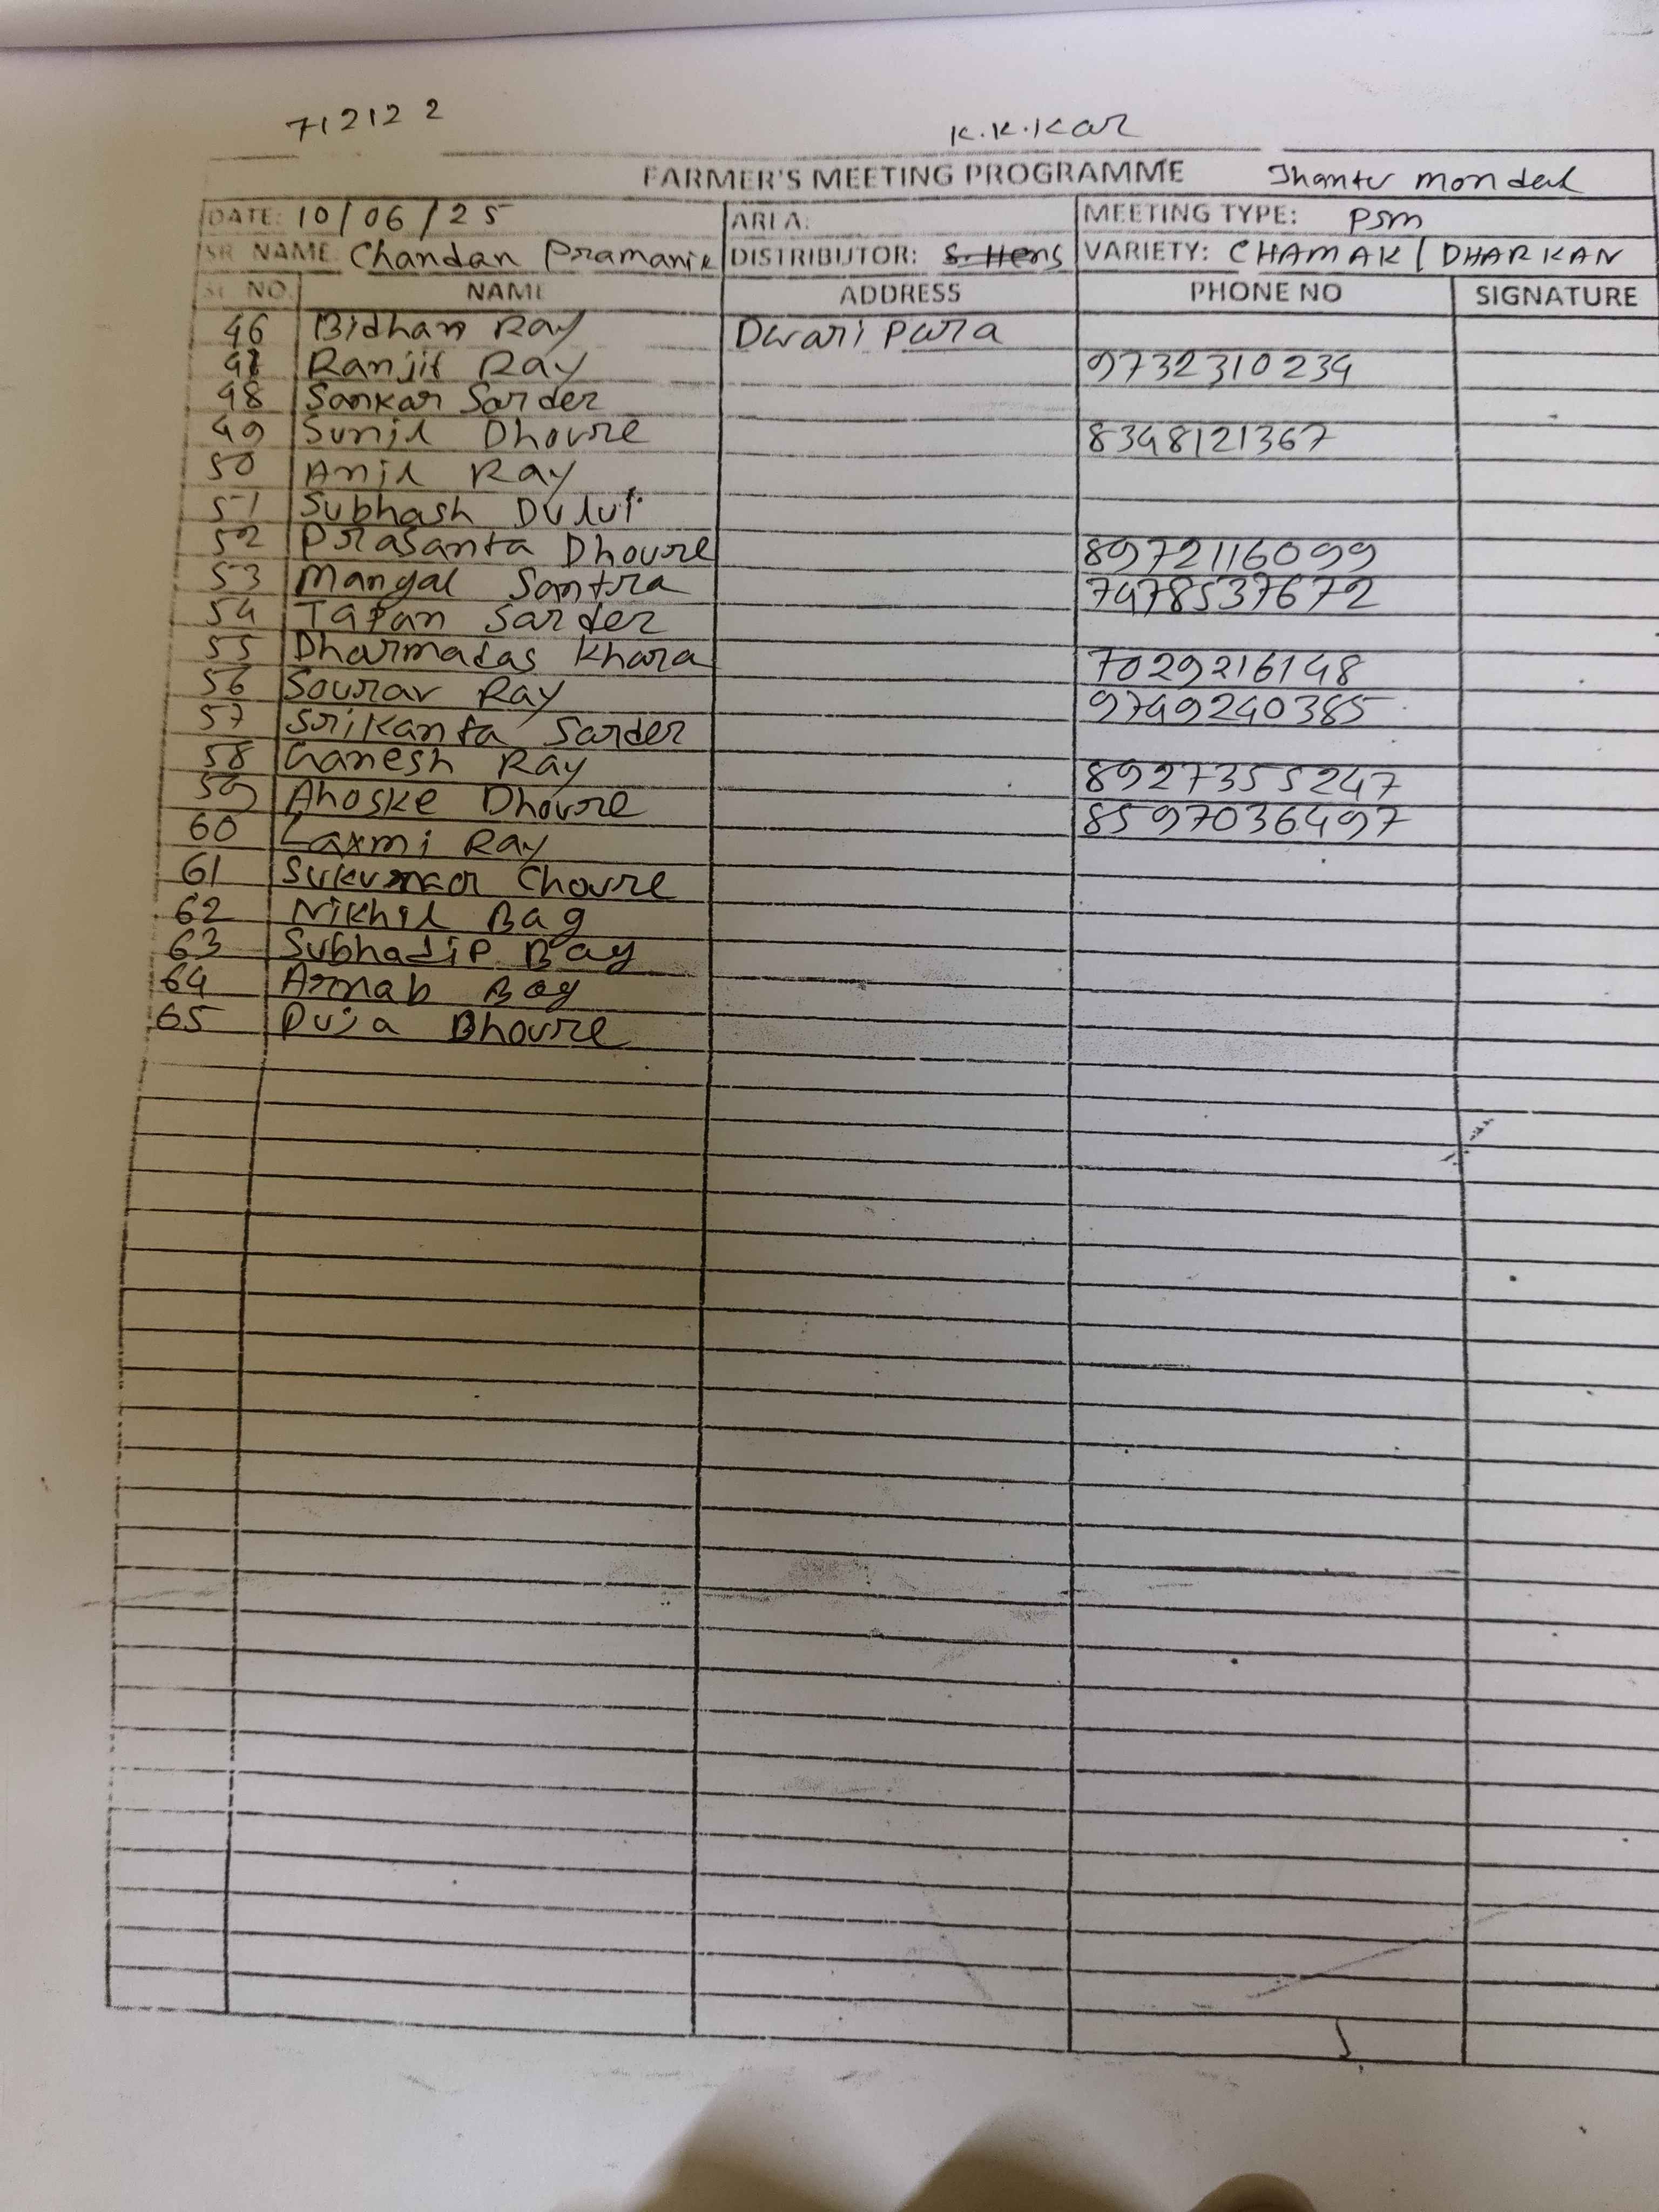 712122
K.K.Kar
FARMER'S MEETING PROGRAMME Jhantu mondal
DATE: 10/06/25 AREA: MEETING TYPE: PSM
SR. NAME: Chandan Pramanik DISTRIBUTOR: S. Hens VARIETY: CHAMAK / DHARKAN
SL NO. NAME ADDRESS PHONE NO SIGNATURE
46 Bidhan Ray Dwari para
47 Ranjit Ray 9732310234
48 Sankar Sarder
49 Sunil Dhoure 8348121367
50 Anil Ray
51 Subhash Dului
52 Prasanta Dhoure 8972116099
53 Mangal Santra 7478537672
54 Tapan Sarder
55 Dharmadas Khara 7029216148
56 Sourav Ray 9749240385
57 Srikanta Sarder
58 Ganesh Ray 8927355247
59 Ahoske Dhoure 8597036497
60 Laxmi Ray
61 Sukumar Choure
62 Nikhil Bag
63 Subhadip Bag
64 Arnab Bag
65 Puja Dhoure